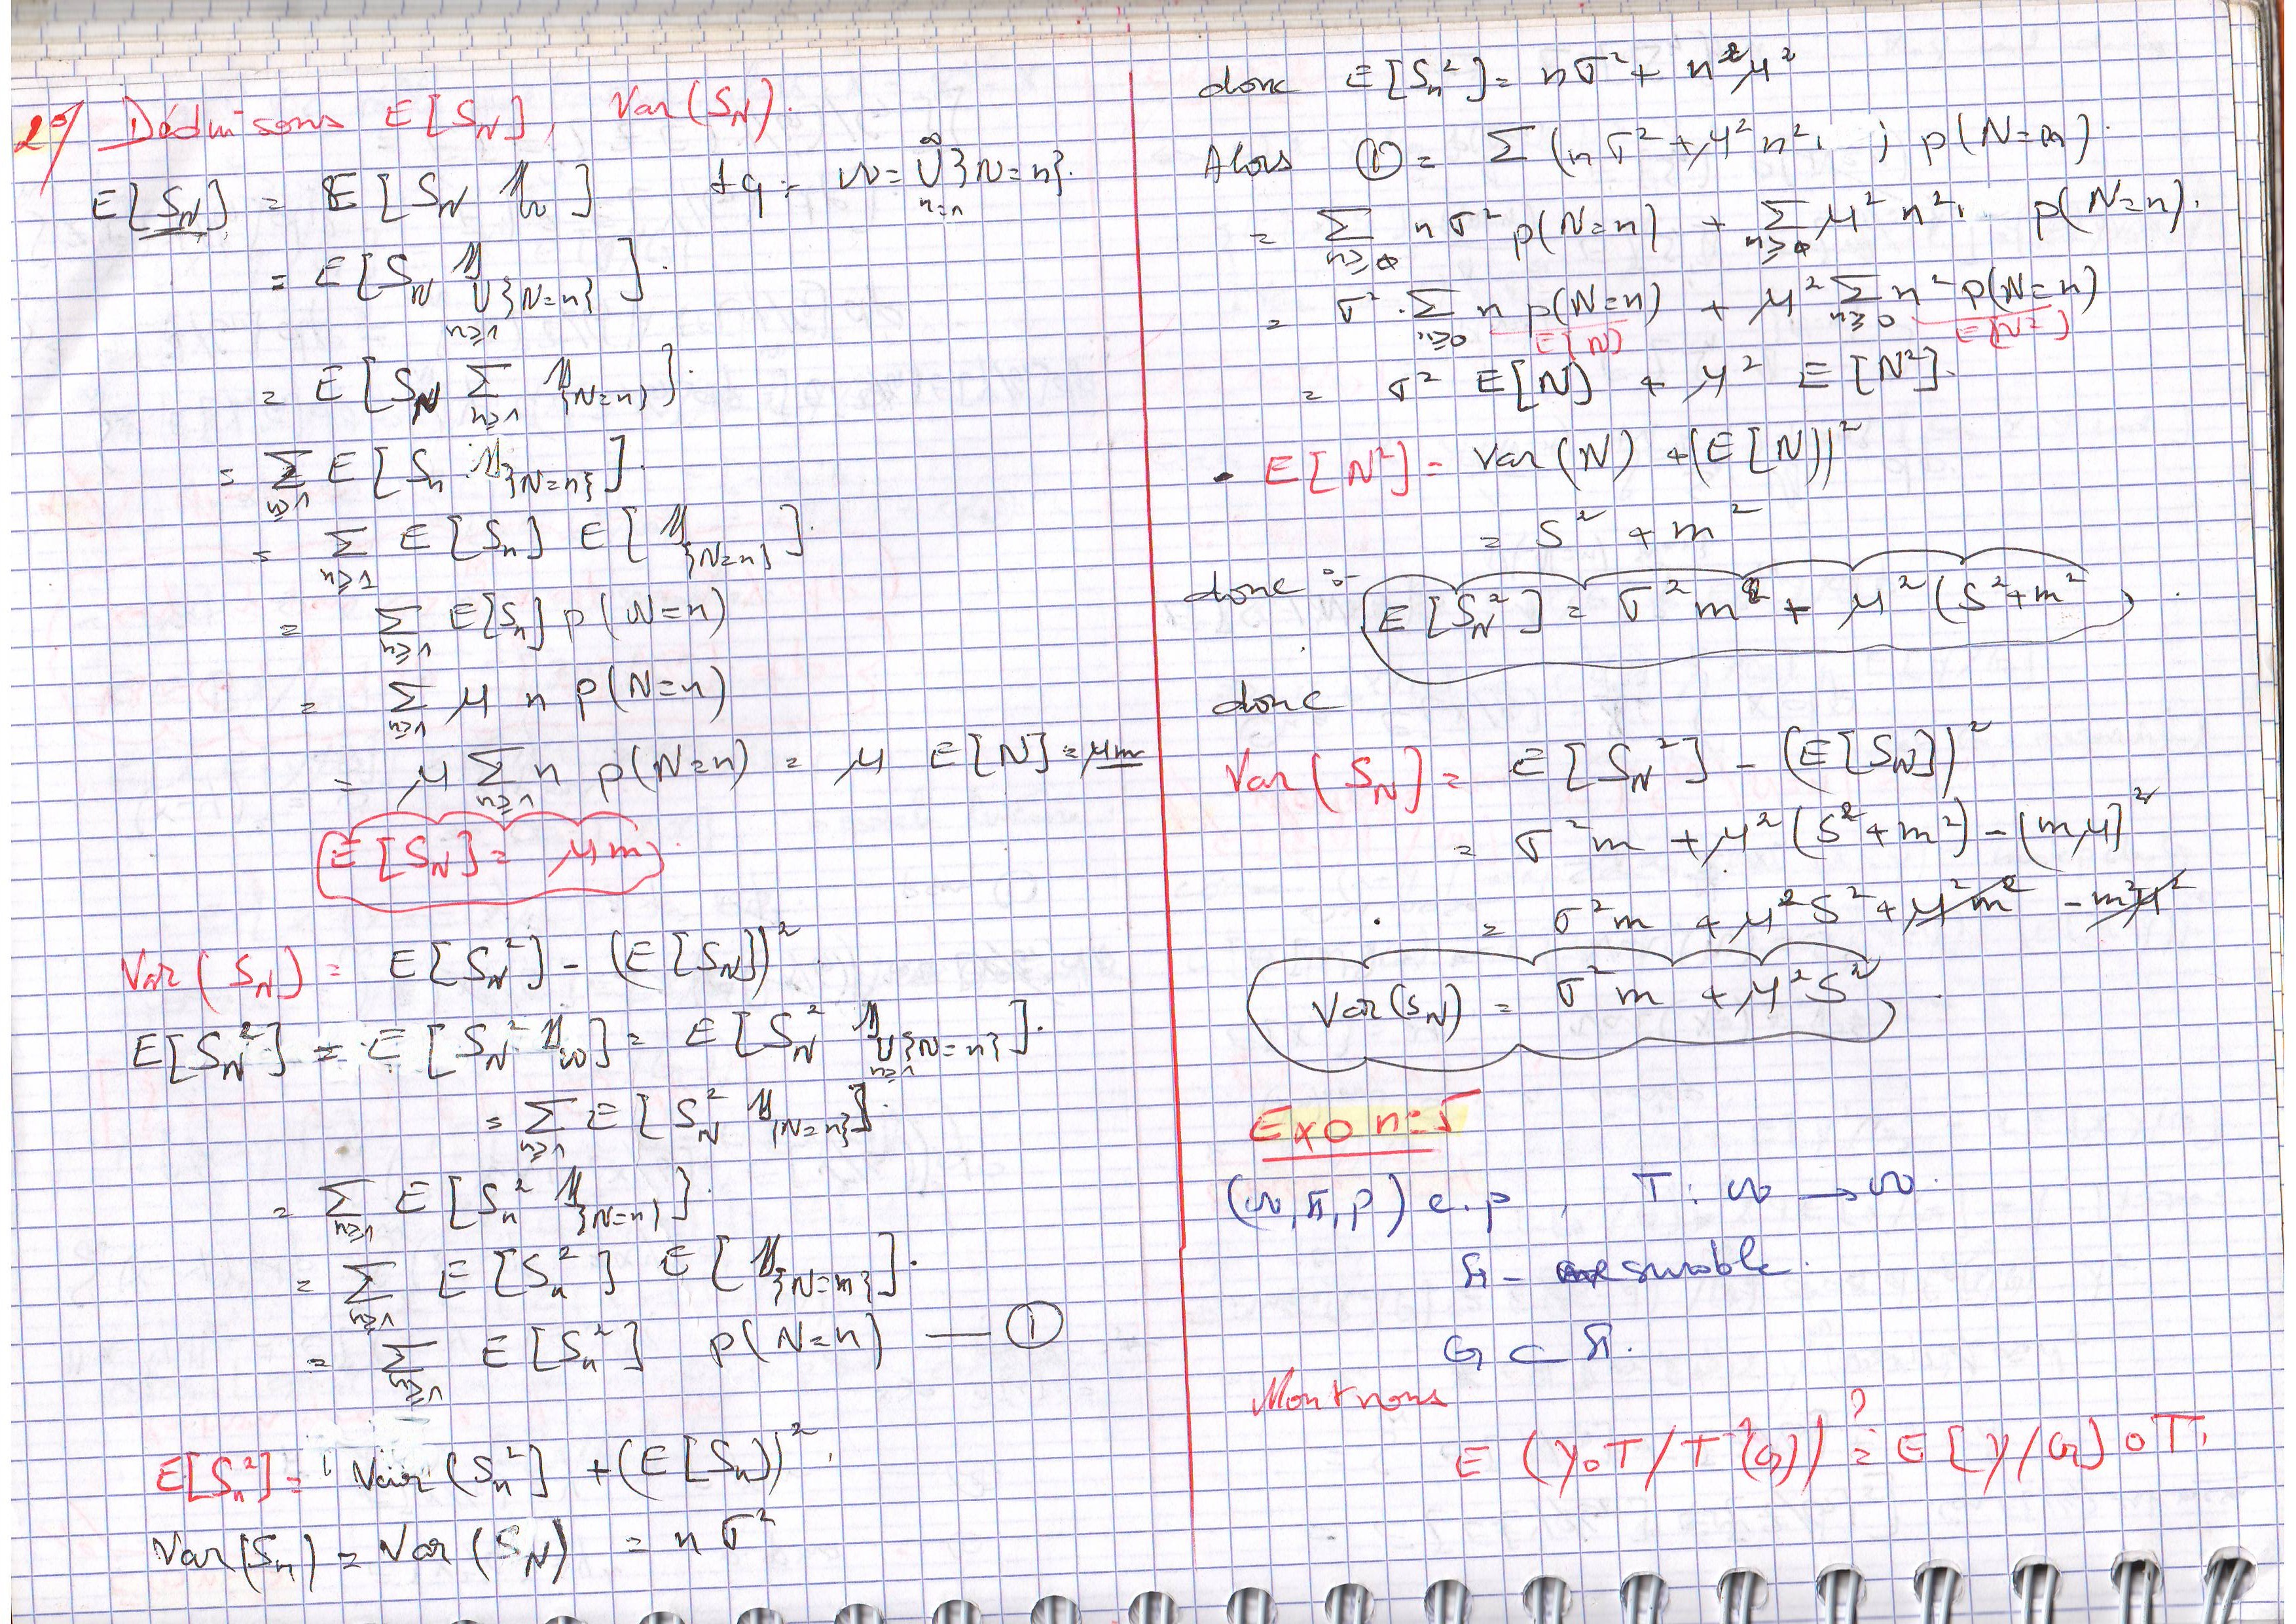 2°/ Déduisons E[S_N], Var(S_N).
E[S_N] = E[S_N 𝟙_Ω] tq: Ω = ∪_{n=1}^∞ {N=n}.
= E[S_N 𝟙_{∪_{n≥1} {N=n}}].
= E[S_N Σ_{n≥1} 𝟙_{{N=n}}].
= Σ_{n≥1} E[S_n . 𝟙_{{N=n}}].
= Σ_{n≥1} E[S_n] E[𝟙_{{N=n}}].
= Σ_{n≥1} E[S_n] p(N=n)
= Σ_{n≥1} μ n p(N=n)
= μ Σ_{n≥1} n p(N=n) = μ E[N] = μm
E[S_N] = μm.
Var(S_N) = E[S_N²] - (E[S_N])².
E[S_N²] = E[S_N² 𝟙_Ω] = E[S_N² 𝟙_{∪_{n≥1} {N=n}}].
= Σ_{n≥1} E[S_N² 𝟙_{{N=n}}].
= Σ_{n≥1} E[S_n² 𝟙_{{N=n}}].
= Σ_{n≥1} E[S_n²] E[𝟙_{{N=n}}].
= Σ_{n≥1} E[S_n²] p(N=n) — ①
E[S_n²] = Var(S_n²] + (E[S_n])².
Var(S_n) = Var(S_N) = n σ²
donc E[S_n²] = nσ² + n²μ²
Alors ① = Σ (nσ² + μ²n² ) p(N=n).
= Σ_{n≥0} n σ² p(N=n) + Σ_{n≥0} μ² n² . p(N=n).
= σ² . Σ_{n≥0} n p(N=n) + μ² Σ_{n≥0} n² p(N=n)
E[N] E[N²]
= σ² E[N] + μ² E[N²].
- E[N²] = Var(N) + (E[N])²
= S² + m²
donc :- E[S_N²] = σ²m + μ²(S²+m²) .
donc
Var(S_N) = E[S_N²] - (E[S_N])²
= σ²m + μ²(S²+m²) - (mμ)²
. = σ²m + μ²S² + μ²m² - m²μ²
Var(S_N) = σ²m + μ²S² .
Exo n=5
(Ω, 𝓐, p) e.p , T : Ω → Ω.
𝓐 - mesurable.
G ⊂ 𝓐.
Montrons
E (Y∘T / T⁻¹(G)) ≟ E[Y/G] ∘ T.